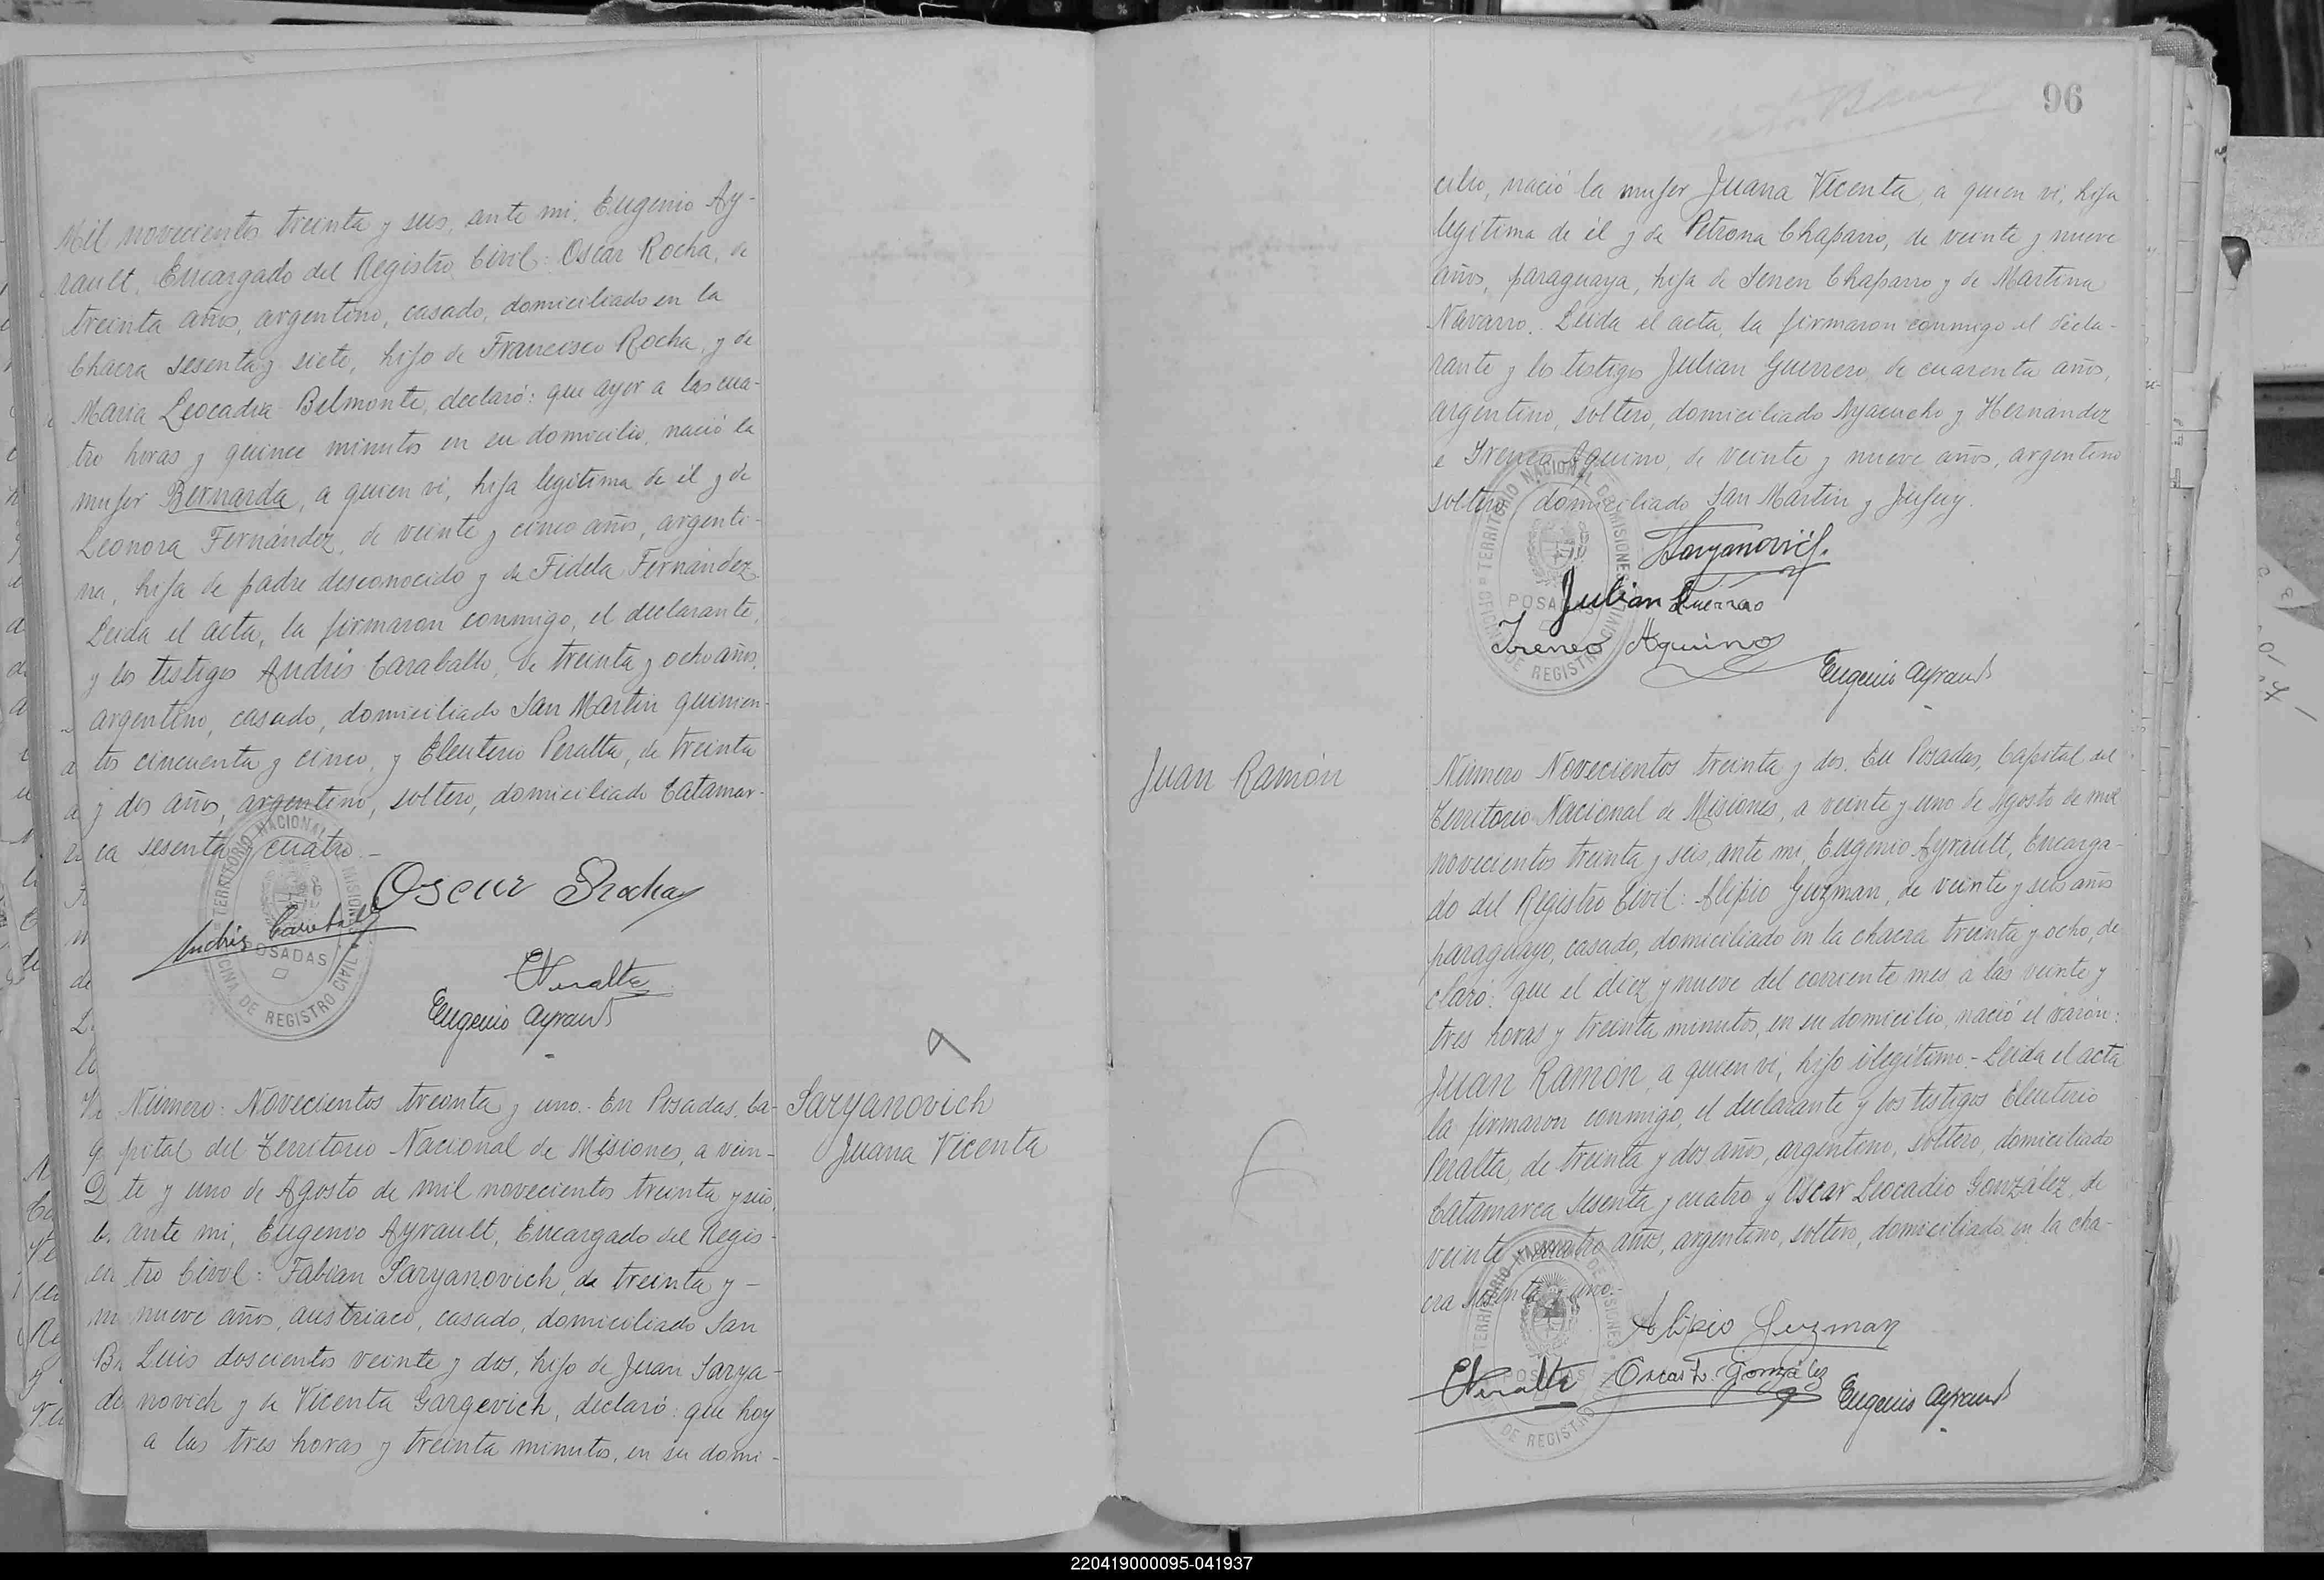 Mil novecientos treinta y seis, ante mi, Eugenio Ay-
rault, Encargado del Registro Civil: Oscar Rocha, de
treinta años, argentino, casado, domiciliado en la
Chacra sesenta y siete, hijo de Francisco Rocha, y de
Maria Leocadia Belmonte, declaró: que ayer a las cua-
tro horas y quince minutos en su domicilio, nació la
mujer Bernarda, a quien vi, hija legítima de él y de
Leonora Fernández, de veinte y cinco años, argenti-
na, hija de padre desconocido y de Fidela Fernández.
Leida el acta, la firmaron conmigo, el declarante,
y los testigos Andrés Caraballo, de treinta y ocho años,
argentino, casado, domiciliado San Martin quinien-
tos cincuenta y cinco, y Eleuterio Peralta, de treinta
y dos años, argentino, soltero, domiciliado Catamar-
ca sesenta y cuatro.-
Oscar Rocha
Andrés Caraballo
TERRITORIO NACIONAL MISIONES
POSADAS
OFICINA DE REGISTRO CIVIL
EPeralta
Eugenio Ayrault
Saryanovich
Juana Vicenta
Número: Novecientos treinta y uno.- En Posadas, Ca-
pital del Territorio Nacional de Misiones, a vein-
te y uno de Agosto de mil novecientos treinta y seis,
ante mi, Eugenio Ayrault, Encargado del Regis-
tro Civil: Fabian Saryanovich, de treinta y -
nueve años, austriaco, casado, domiciliado San
Luis doscientos veinte y dos, hijo de Juan Sarya-
novich y de Vicenta Gargevich, declaró: que hoy
a las tres horas y treinta minutos, en su domi-
96
cilio, nació la mujer Juana Vicenta, a quien vi, hija
legítima de él y de Petrona Chaparro, de veinte y nueve
años, paraguaya, hija de Senen Chaparro y de Martina
Navarro. Leida el acta, la firmaron conmigo el decla-
rante y los testigos Julian Guerrero de cuarenta años,
argentino, soltero, domiciliado Ayacucho y Hernández
e Ireneo Aquino, de veinte y nueve años, argentino
soltero, domiciliado San Martin y Jujuy.
Saryanovich.
Julian Guerrero
Ireneo Aquino
Eugenio Ayrault
TERRITORIO NACIONAL DE MISIONES
POSADAS
OFICINA DE REGISTRO CIVIL
Juan Ramón
Número Novecientos treinta y dos. En Posadas, Capital del
Territorio Nacional de Misiones, a veinte y uno de Agosto de mil
novecientos treinta y seis, ante mi, Eugenio Ayrault, Encarga-
do del Registro Civil: Alipio Guzman, de veinte y seis años
paraguayo, casado, domiciliado en la chacra treinta y ocho, de
claró: que el diez y nueve del corriente mes, a las veinte y
tres horas y treinta minutos, en su domicilio, nació el varón:
Juan Ramón, a quien vi, hijo ilegítimo.- Leida el acta
la firmaron conmigo, el declarante y los testigos Eleuterio
Peralta, de treinta y dos años, argentino, soltero, domiciliado
Catamarca sesenta y cuatro y Oscar Leocadio González, de
veinte y cuatro años, argentino, soltero, domiciliado en la cha-
cra sesenta y uno.-
Alipio Guzman
EPeralta
Oscar L. González
Eugenio Ayrault
TERRITORIO NACIONAL DE MISIONES
POSADAS
DE REGISTRO
220419000095-041937